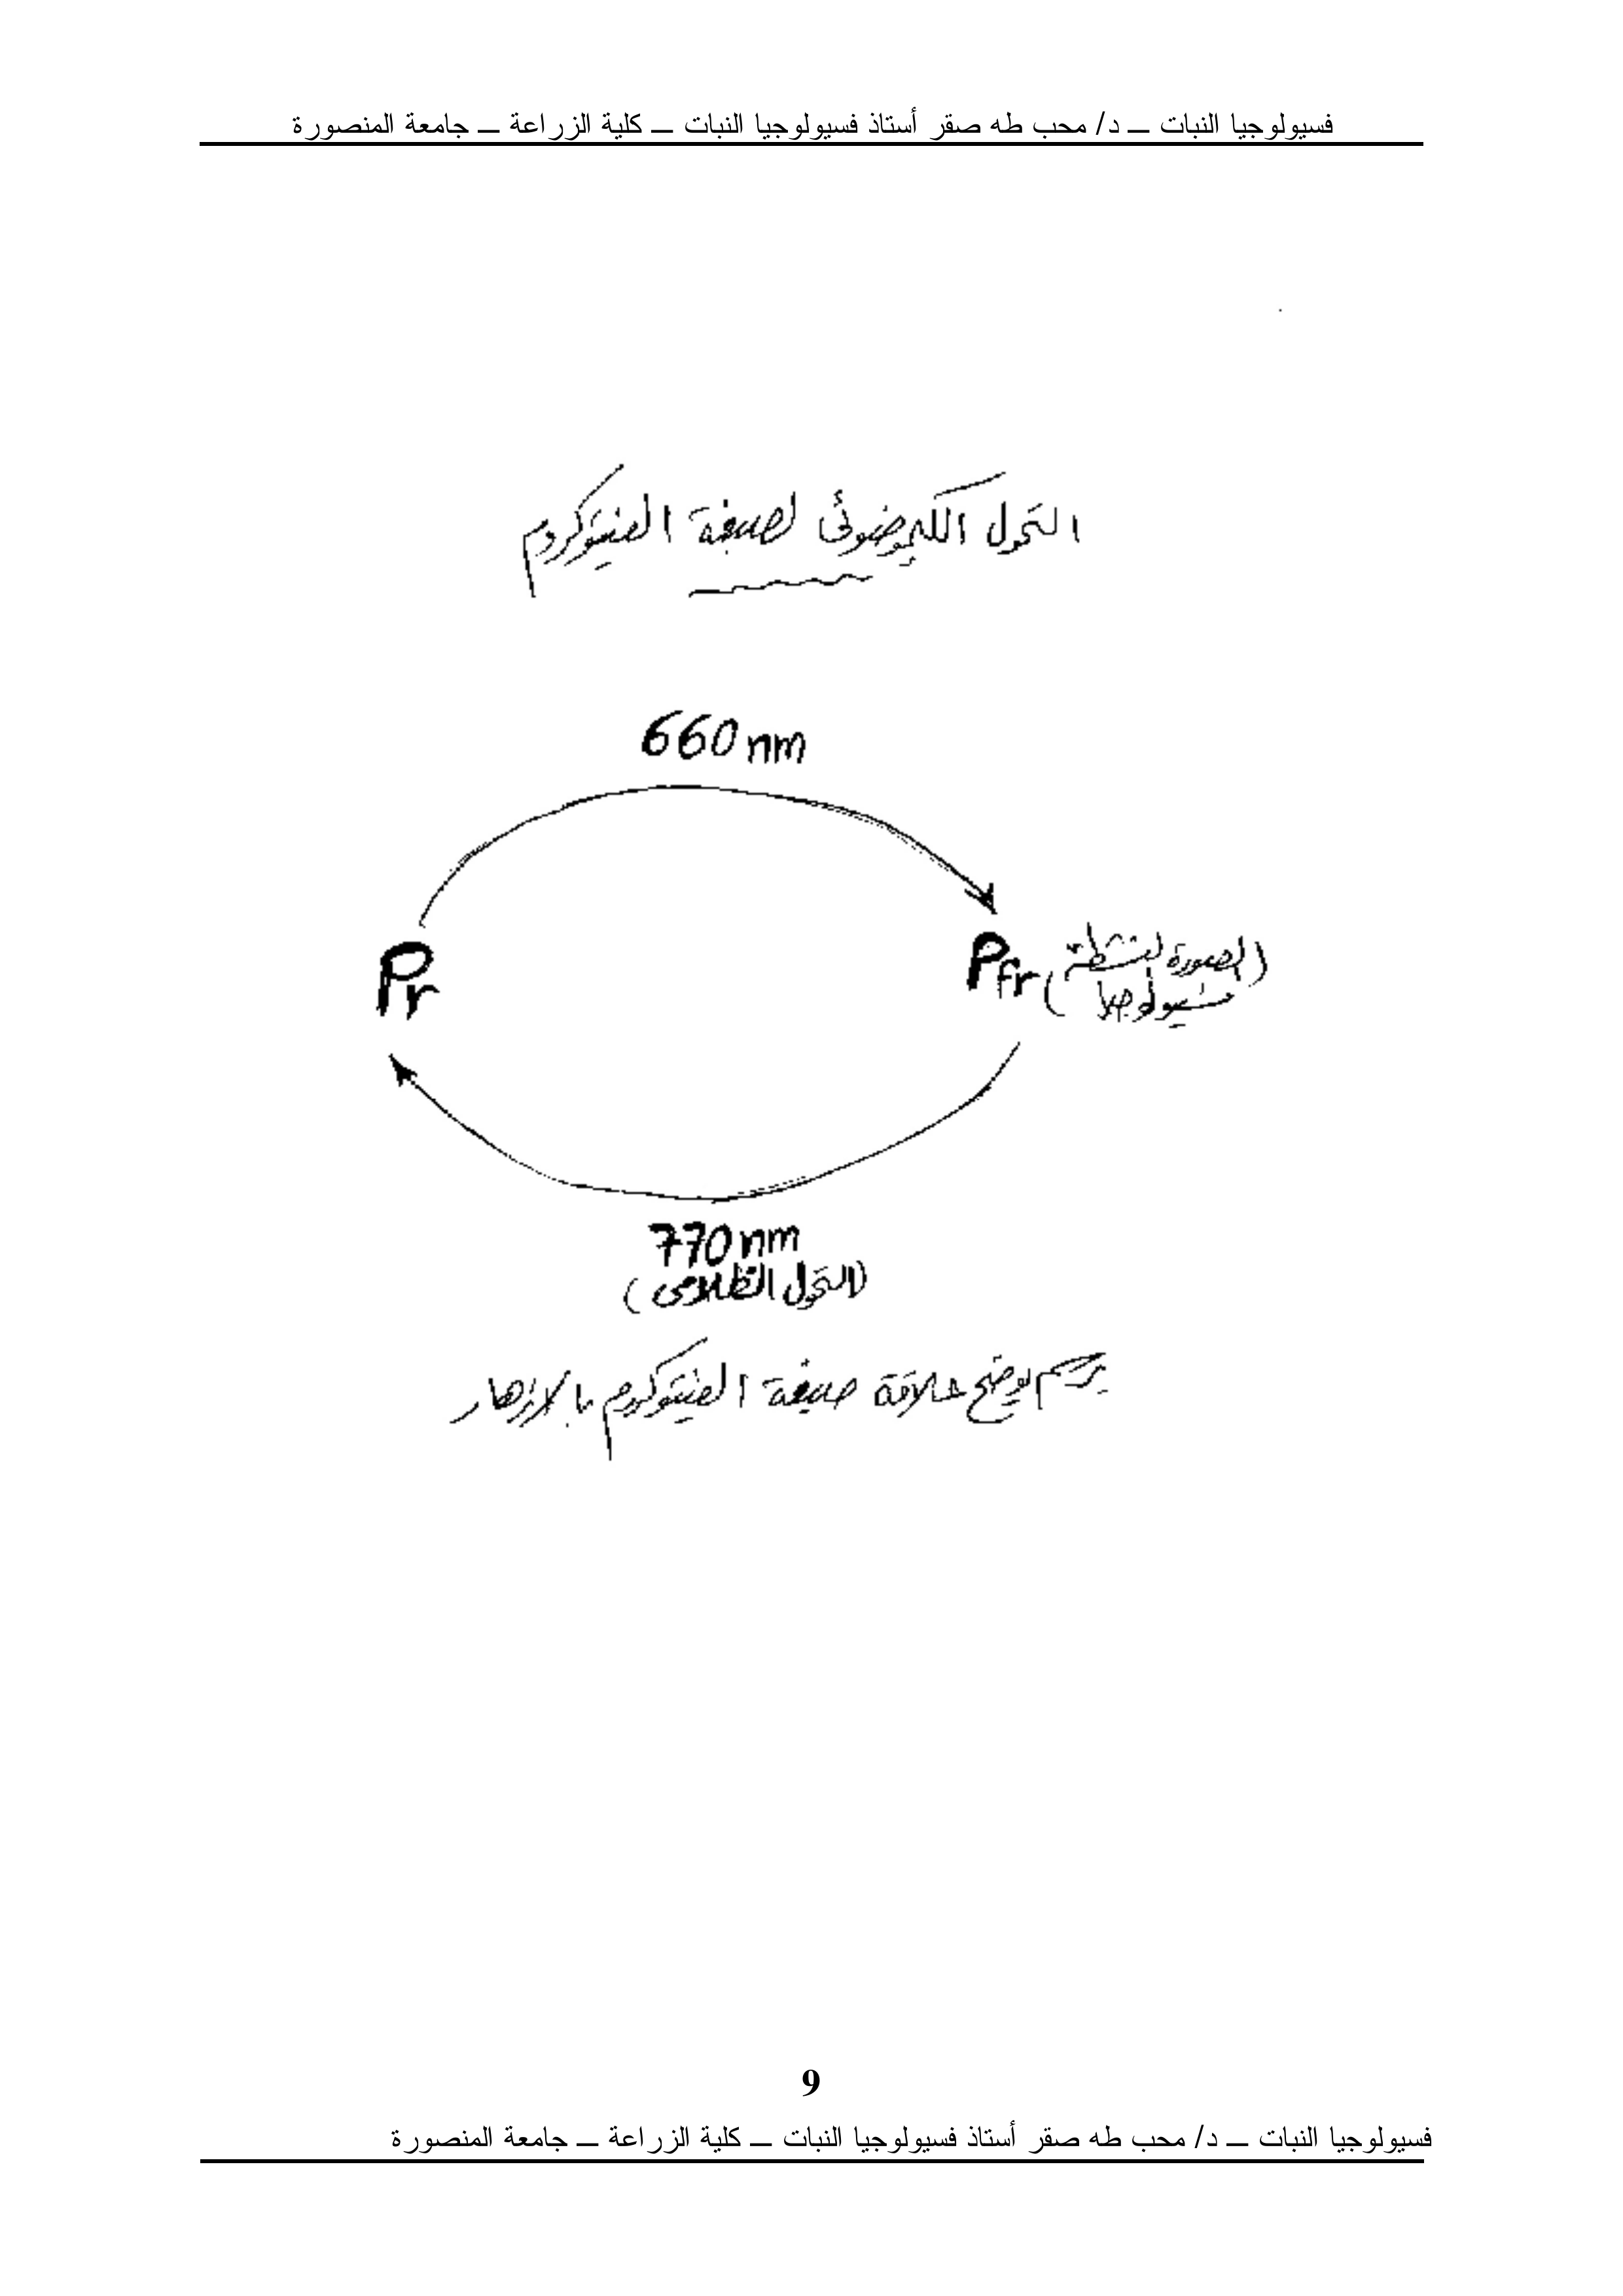 فسيولوجيا النبات ــ د/ محب طه صقر أستاذ فسيولوجيا النبات ــ كلية الزراعة ــ جامعة المنصورة
التحول الكيموضوئى لصبغة الفيتوكروم
660 nm
Pr
Pfr (الصورة النشطة
فسيولوجيا)
770 nm
(التحول الظلامى)
رسم يوضح علاقة صبغة الفيتوكروم بالازهار
9
فسيولوجيا النبات ــ د/ محب طه صقر أستاذ فسيولوجيا النبات ــ كلية الزراعة ــ جامعة المنصورة